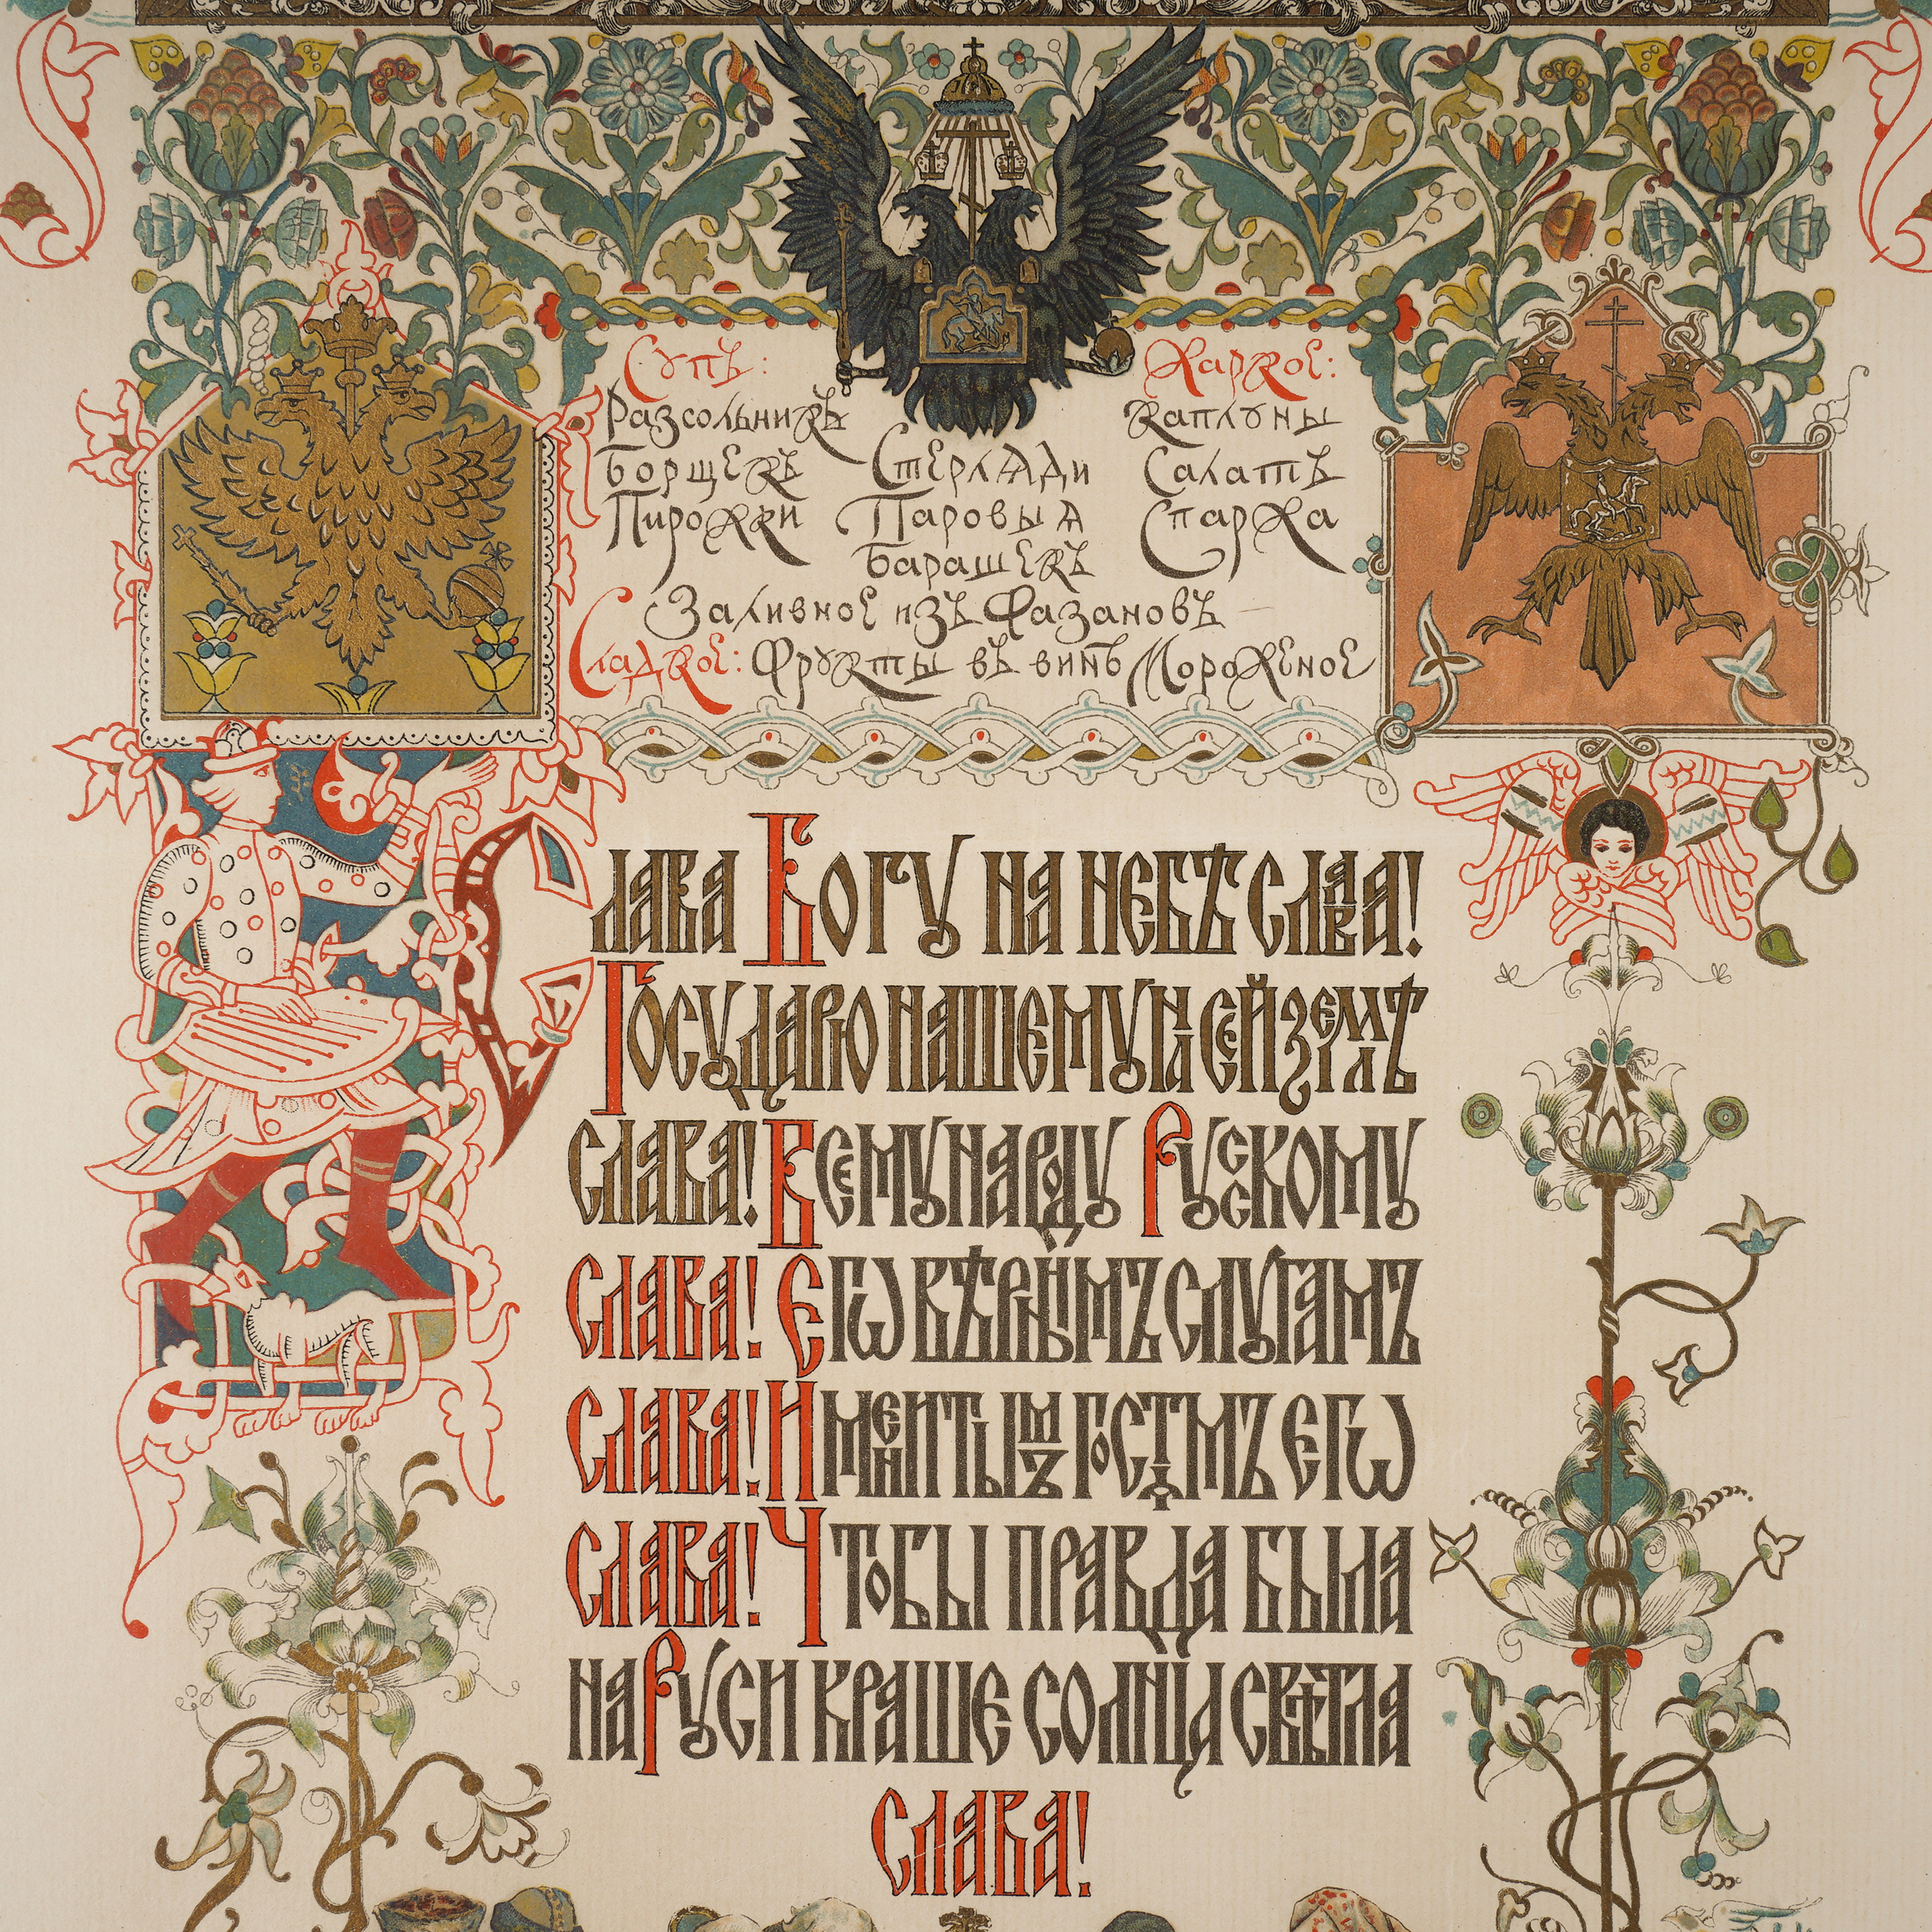 Супъ:
Разсольникъ
Борщекъ
Пирожки
Стерляди
Паровыя
Барашекъ
Жаркое:
Каплуны
Салатъ
Спаржа
Заливное изъ Фазановъ
Сладкое: Фрукты въ винѣ Мороженое
Слава Богу на небѣ слава!
Государю нашему на сей землѣ
слава! Всему народу Русскому
слава! Егѡ вѣрнымъ слугамъ
слава! Именитымъ гостѧмъ егѡ
слава! Чтобы правда была
на Руси краше солнца свѣтла
слава!